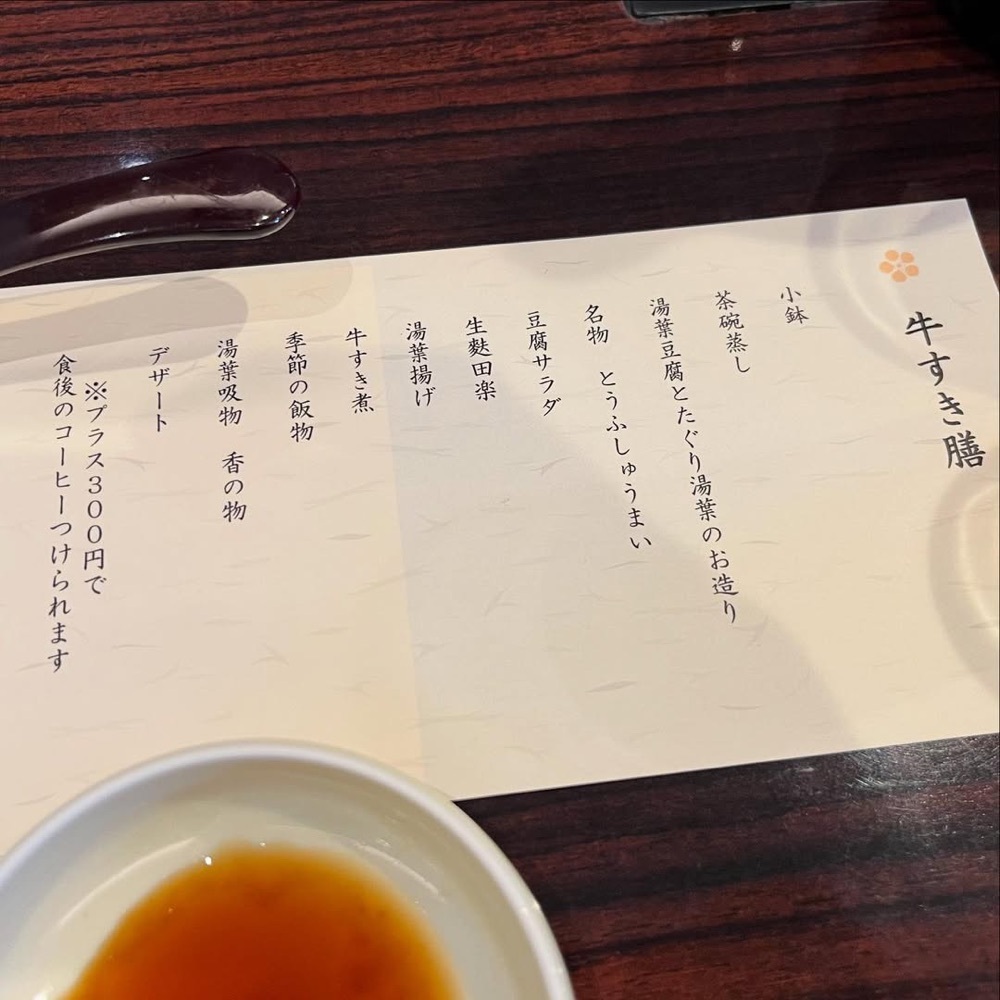 牛すき膳
小鉢
茶碗蒸し
湯葉豆腐とたぐり湯葉のお造り
名物　とうふしゅうまい
豆腐サラダ
生麩田楽
湯葉揚げ
牛すき煮
季節の飯物
湯葉吸物　香の物
デザート
※プラス300円で
食後のコーヒーつけられます